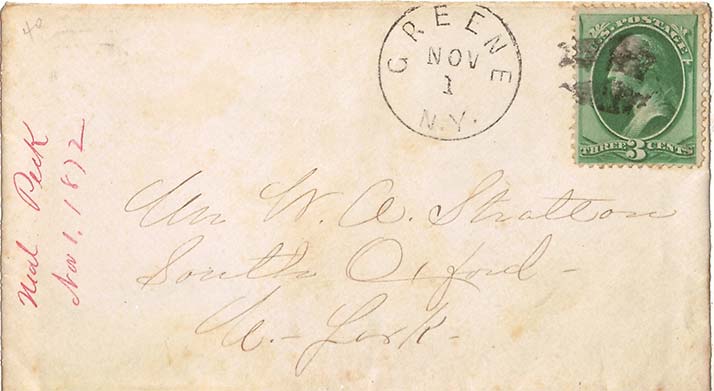 40
GREENE
NOV
1
N.Y.
U.S. POSTAGE
THREE 3 CENTS
Neal Peck
Nov 1, 1872
Mr W. A. Stratton
South Oxford-
N- York-